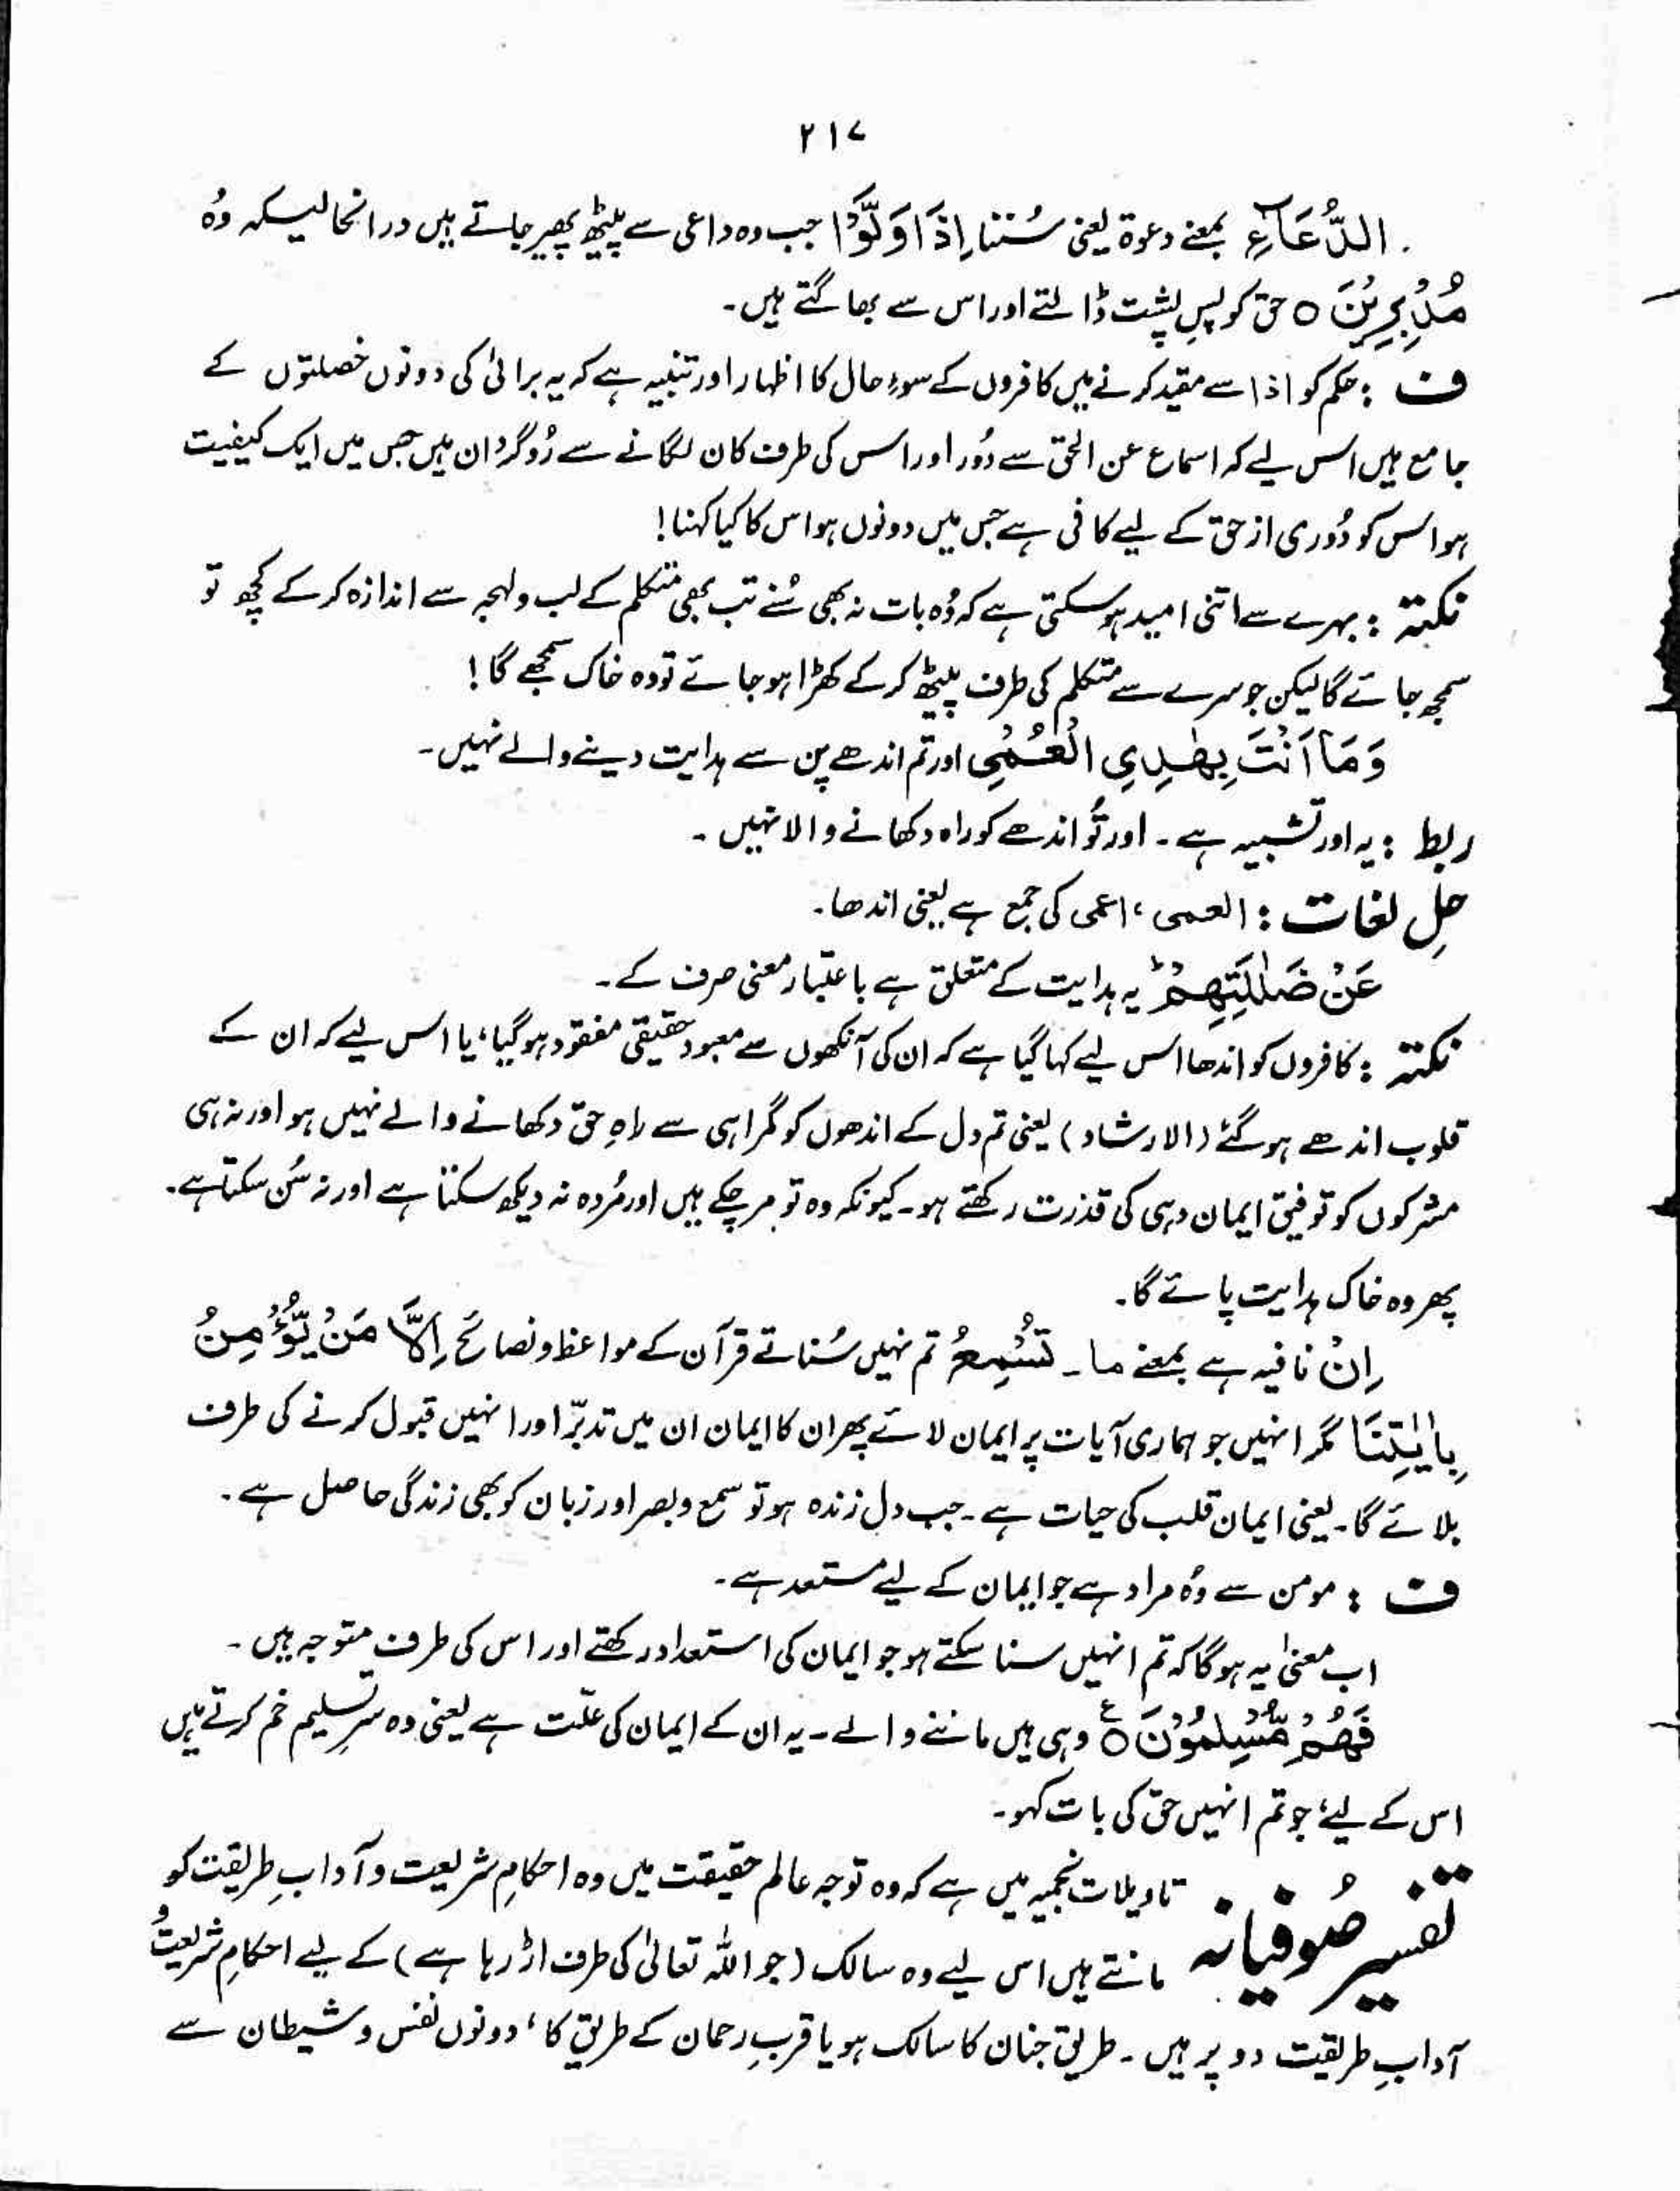 ۲۱۷
الدُّعَآءَ بمعنے دعوۃ یعنی سُننا اِذَا وَلَّوْا جب وہ داعی سے پیٹھ پھیر جاتے ہیں درانحالیکہ وُہ
مُدْبِرِیْنَ ○ حق کو پسِ پشت ڈالتے اور اس سے بھاگتے ہیں۔
ف : حکم کو اذا سے مقید کرنے میں کافروں کے سوءِ حال کا اظہار اور تنبیہ ہے کہ یہ برائی کی دونوں خصلتوں کے
جامع ہیں اس لیے کہ اسماع عن الحق سے دُور اور اس کی طرف کان لگانے سے رُوگردان ہیں جس میں ایک کیفیت
ہو اس کو دُوری از حق کے لیے کافی ہے جس میں دونوں ہو اس کا کیا کہنا!
نکتہ : بہرے سے اتنی امید ہو سکتی ہے کہ وُہ بات نہ بھی سُنے تب بھی متکلم کے لب و لہجہ سے اندازہ کر کے کچھ تو
سمجھ جائے گا لیکن جو سرے سے متکلم کی طرف پیٹھ کر کے کھڑا ہو جائے تو وہ خاک سمجھے گا !
وَمَآ اَنْتَ بِھٰدِی الْعُمْیِ اور تم اندھے پن سے ہدایت دینے والے نہیں۔
ربط : یہ اور تشبیہ ہے۔ اور تُو اندھے کو راہ دکھانے والا نہیں۔
حل لغات : العمی، اعمی کی جمع ہے یعنی اندھا۔
عَنْ ضَلٰلَتِھِمْ ؕ یہ ہدایت کے متعلق ہے باعتبار معنی صرف کے۔
نکتہ : کافروں کو اندھا اس لیے کہا گیا ہے کہ ان کی آنکھوں سے معبود حقیقی مفقود ہو گیا، یا اس لیے کہ ان کے
قلوب اندھے ہو گئے (الارشاد) یعنی تم دل کے اندھوں کو گمراہی سے راہِ حق دکھانے والے نہیں ہو اور نہ ہی
مشرکوں کو توفیق ایمان دہی کی قدرت رکھتے ہو۔ کیونکہ وہ تو مر چکے ہیں اور مُردہ نہ دیکھ سکتا ہے اور نہ سُن سکتا ہے۔
پھر وہ خاک ہدایت پائے گا۔
اِنْ نافیہ ہے بمعنے ما۔ تُسْمِعُ تم نہیں سُناتے قرآن کے مواعظ و نصائح اِلَّا مَنْ یُّؤْمِنُ
بِاٰیٰتِنَا مگر انہیں جو ہماری آیات پر ایمان لائے پھر ان کا ایمان ان میں تدبّر اور انہیں قبول کرنے کی طرف
بلائے گا۔ یعنی ایمان قلب کی حیات ہے۔ جب دل زندہ ہو تو سمع و بصر اور زبان کو بھی زندگی حاصل ہے۔
ف : مومن سے وُہ مراد ہے جو ایمان کے لیے مستعد ہے۔
اب معنیٰ یہ ہو گا کہ تم انہیں سنا سکتے ہو جو ایمان کی استعداد رکھتے اور اس کی طرف متوجہ ہیں۔
فَھُمْ مُّسْلِمُوْنَ ○ ع وہی ہیں ماننے والے۔ یہ ان کے ایمان کی علّت ہے یعنی وہ سرِ تسلیم خم کرتے ہیں
اس کے لیے، جو تم انہیں حق کی بات کہو۔
تفسیر صُوفیانہ تاویلات نجمیہ میں ہے کہ وہ توجہ عالم حقیقت میں وہ احکامِ شریعت و آدابِ طریقت کو
مانتے ہیں اس لیے وہ سالک (جو اللہ تعالیٰ کی طرف اڑ رہا ہے) کے لیے احکامِ شریعت و
آدابِ طریقت دو پر ہیں۔ طریق جنان کا سالک ہو یا قربِ رحمان کے طریق کا، دونوں نفس و شیطان سے